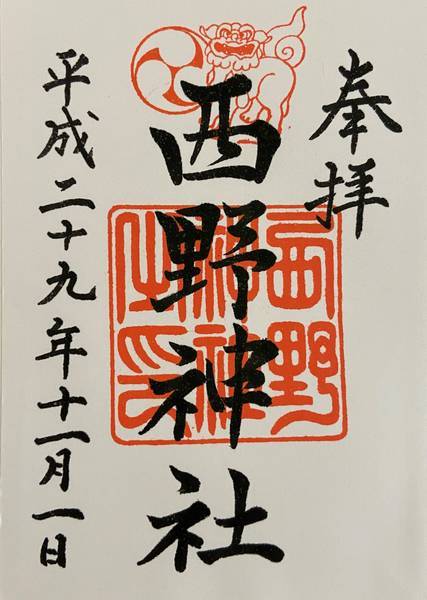 奉拝
西野神社
西野神社之印
平成二十九年十一月一日